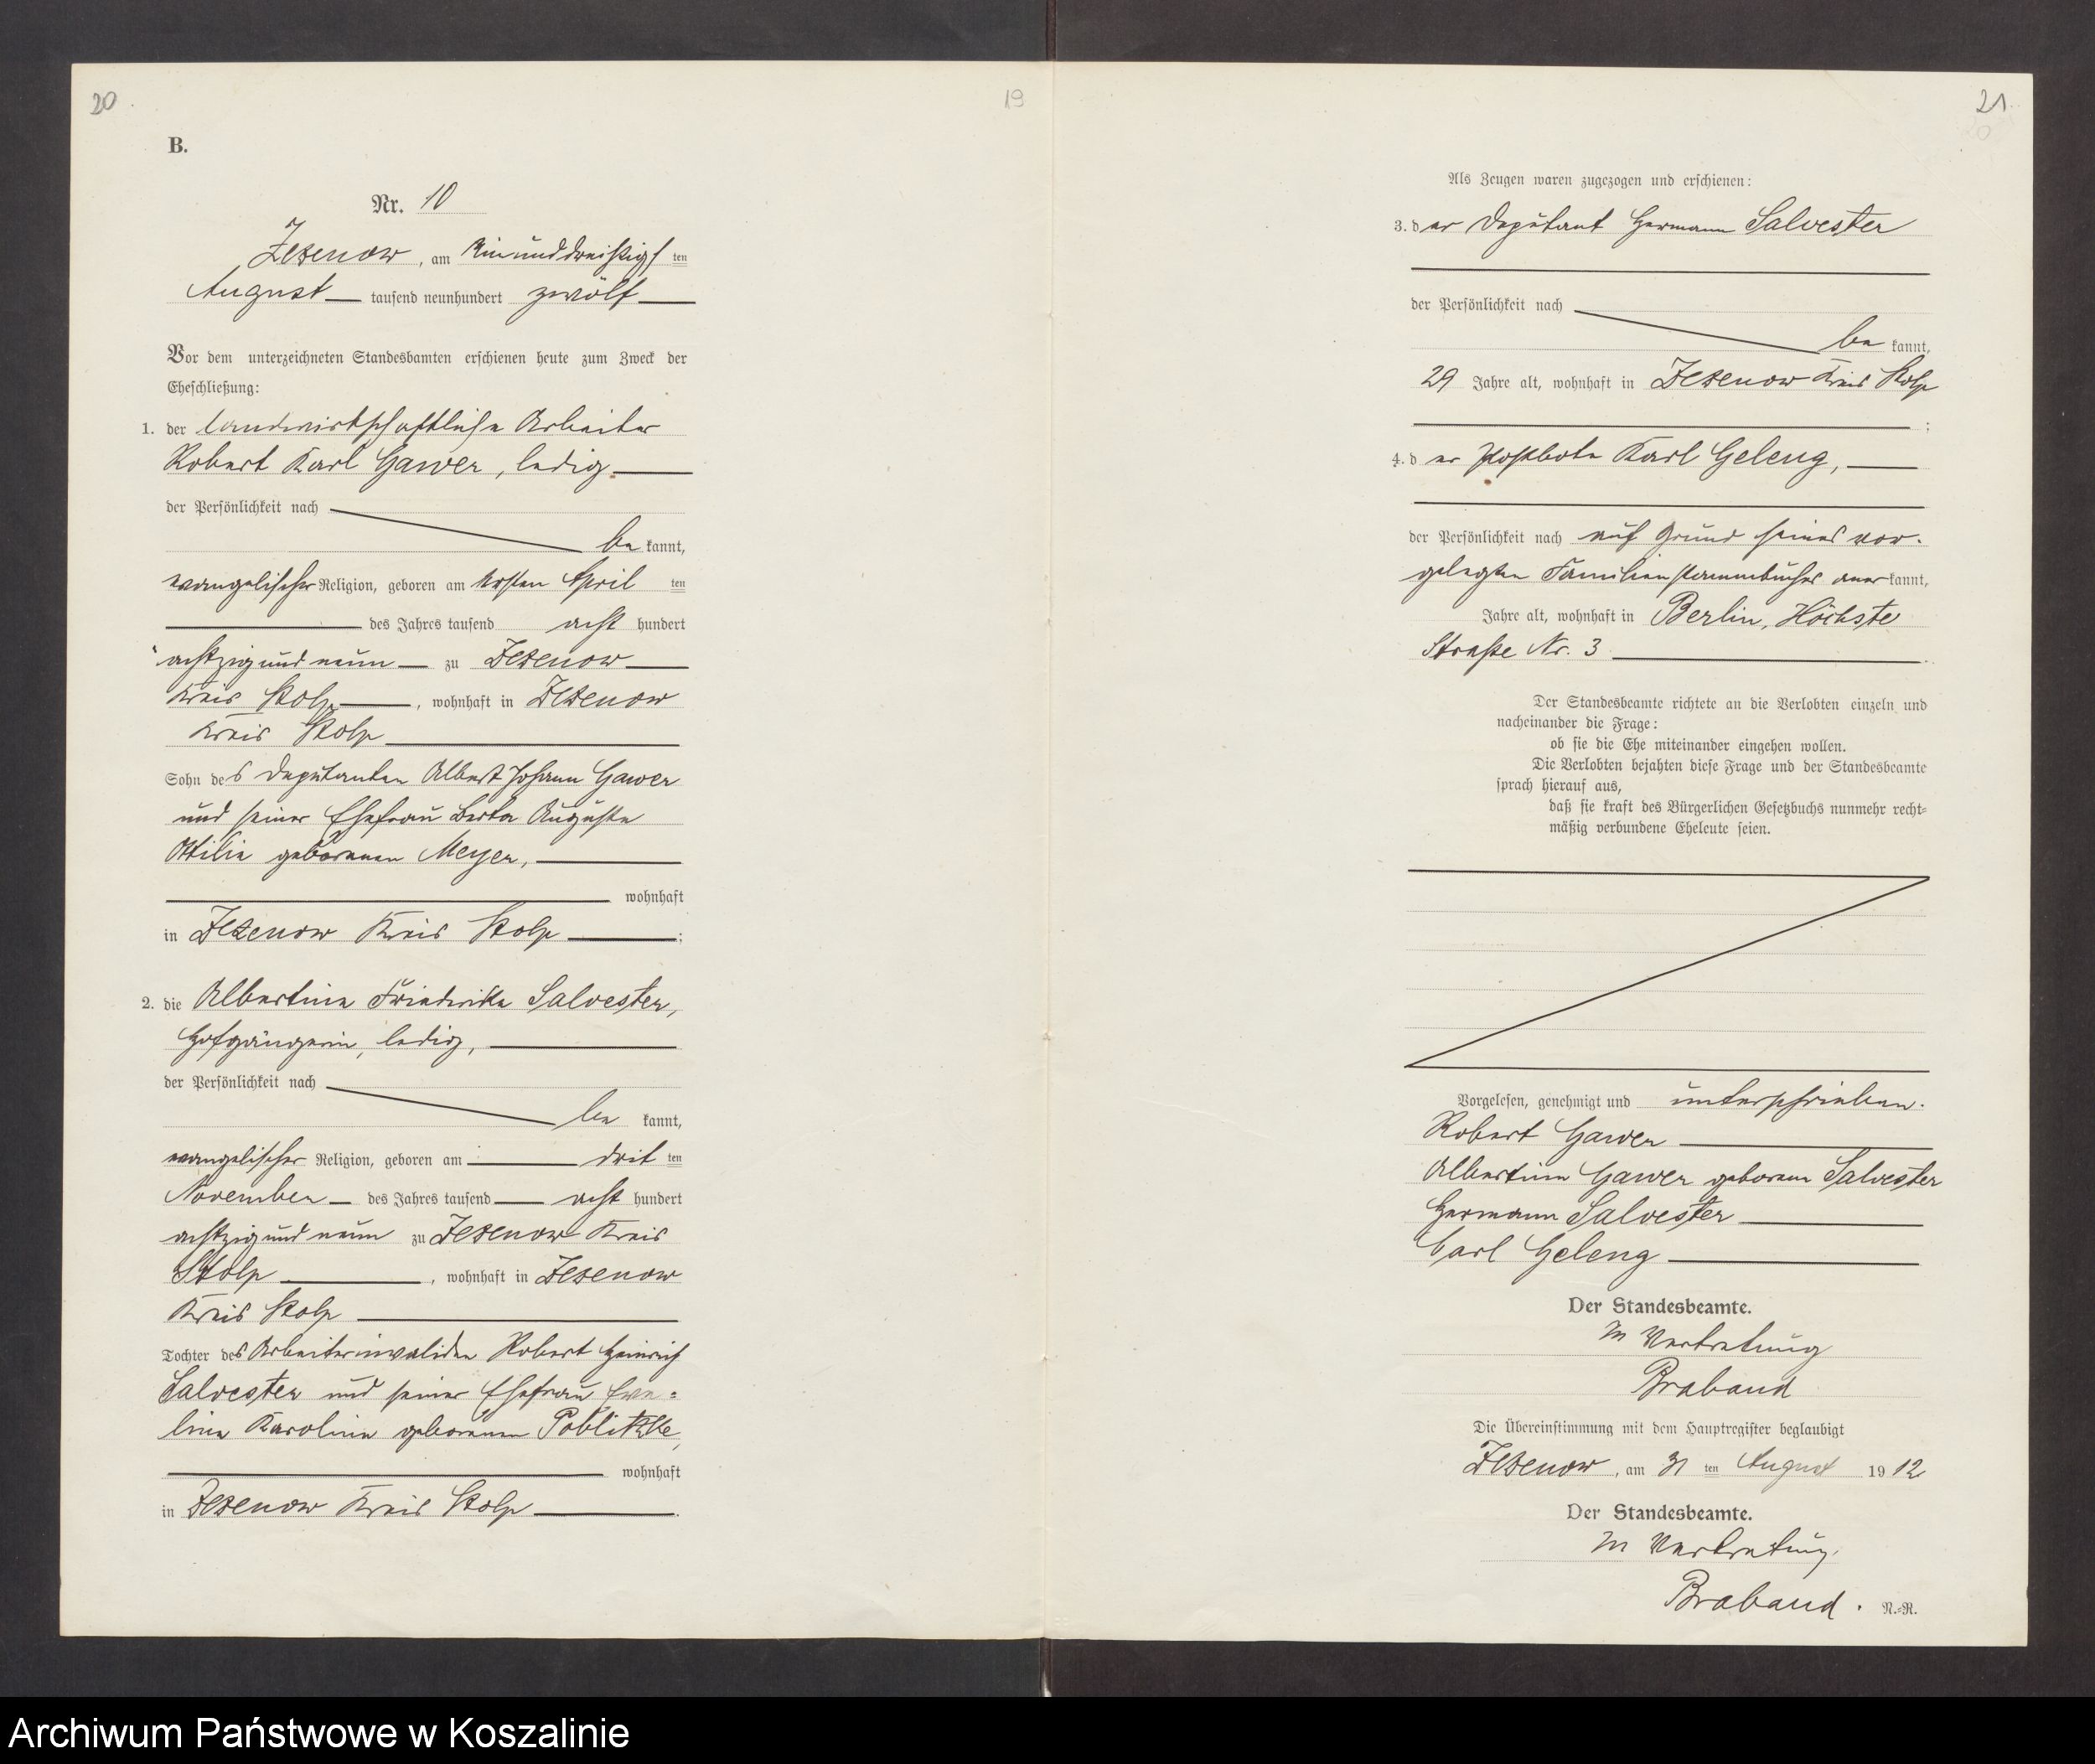 20
B.
Nr. 10
Zezenow, am einunddreißigs ten
August tausend neunhundert zwölf
Vor dem unterzeichneten Standesbamten erschienen heute zum Zweck der
Eheschließung:
1. der landwirtschaftliche Arbeiter
Robert Karl Gawer, ledig
der Persönlichkeit nach
be kannt,
evangelischer Religion, geboren am ersten April ten
des Jahres tausend acht hundert
achtzigundneun zu Zezenow
Kreis Stolp, wohnhaft in Zezenow
Kreis Stolp
Sohn des Deputanten Albert Johann Gawer
und seiner Ehefrau Berta Auguste
Ottilie geborenen Meyer,
wohnhaft
in Zezenow Kreis Stolp;
2. die Albertine Friederike Salvester,
Hofgängerin, ledig,
der Persönlichkeit nach
be kannt,
evangelischer Religion, geboren am drit ten
November des Jahres tausend acht hundert
achtzigundneun zu Zezenow Kreis
Stolp, wohnhaft in Zezenow
Kreis Stolp
Tochter des Arbeiterinvaliden Robert Heinrich
Salvester und seiner Ehefrau Eve=
line Karoline geborenen Poblitzke,
wohnhaft
in Zezenow Kreis Stolp.
19
21
20
Als Zeugen waren zugezogen und erschienen:
3. der Deputant Hermann Salvester
der Persönlichkeit nach
be kannt,
29 Jahre alt, wohnhaft in Zezenow Kreis Stolp
;
4. der Postbote Karl Geleng,
der Persönlichkeit nach auf Grund seines vor-
gelegten Familienstammbuches anerkannt,
Jahre alt, wohnhaft in Berlin, Höchste
Straße Nr. 3.
Der Standesbeamte richtete an die Verlobten einzeln und
nacheinander die Frage:
ob sie die Ehe miteinander eingehen wollen.
Die Verlobten bejahten diese Frage und der Standesbeamte
sprach hierauf aus,
daß sie kraft des Bürgerlichen Gesetzbuchs nunmehr recht=
mäßig verbundene Eheleute seien.
Vorgelesen, genehmigt und unterschrieben.
Robert Gawer
Albertine Gawer geborene Salvester
Hermann Salvester
Carl Geleng
Der Standesbeamte.
In Vertretung
Braband
Die Übereinstimmung mit dem Hauptregister beglaubigt
Zezenow, am 31 ten August 1912
Der Standesbeamte.
In Vertretung.
Braband. N.=R.
Archiwum Państwowe w Koszalinie